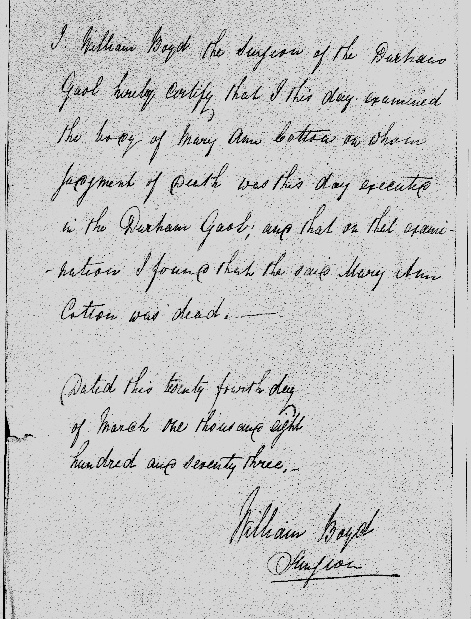 I William Boyd the Surgeon of the Durham
Gaol hereby certify that I this day examined
the body of Mary Ann Cotton on whom
Judgment of Death was this day executed
in the Durham Gaol; and that on that exami-
-nation I found that the said Mary Ann
Cotton was dead. —
Dated this twenty fourth day
of March one thousand eight
hundred and seventy three. _
William Boyd
Surgeon